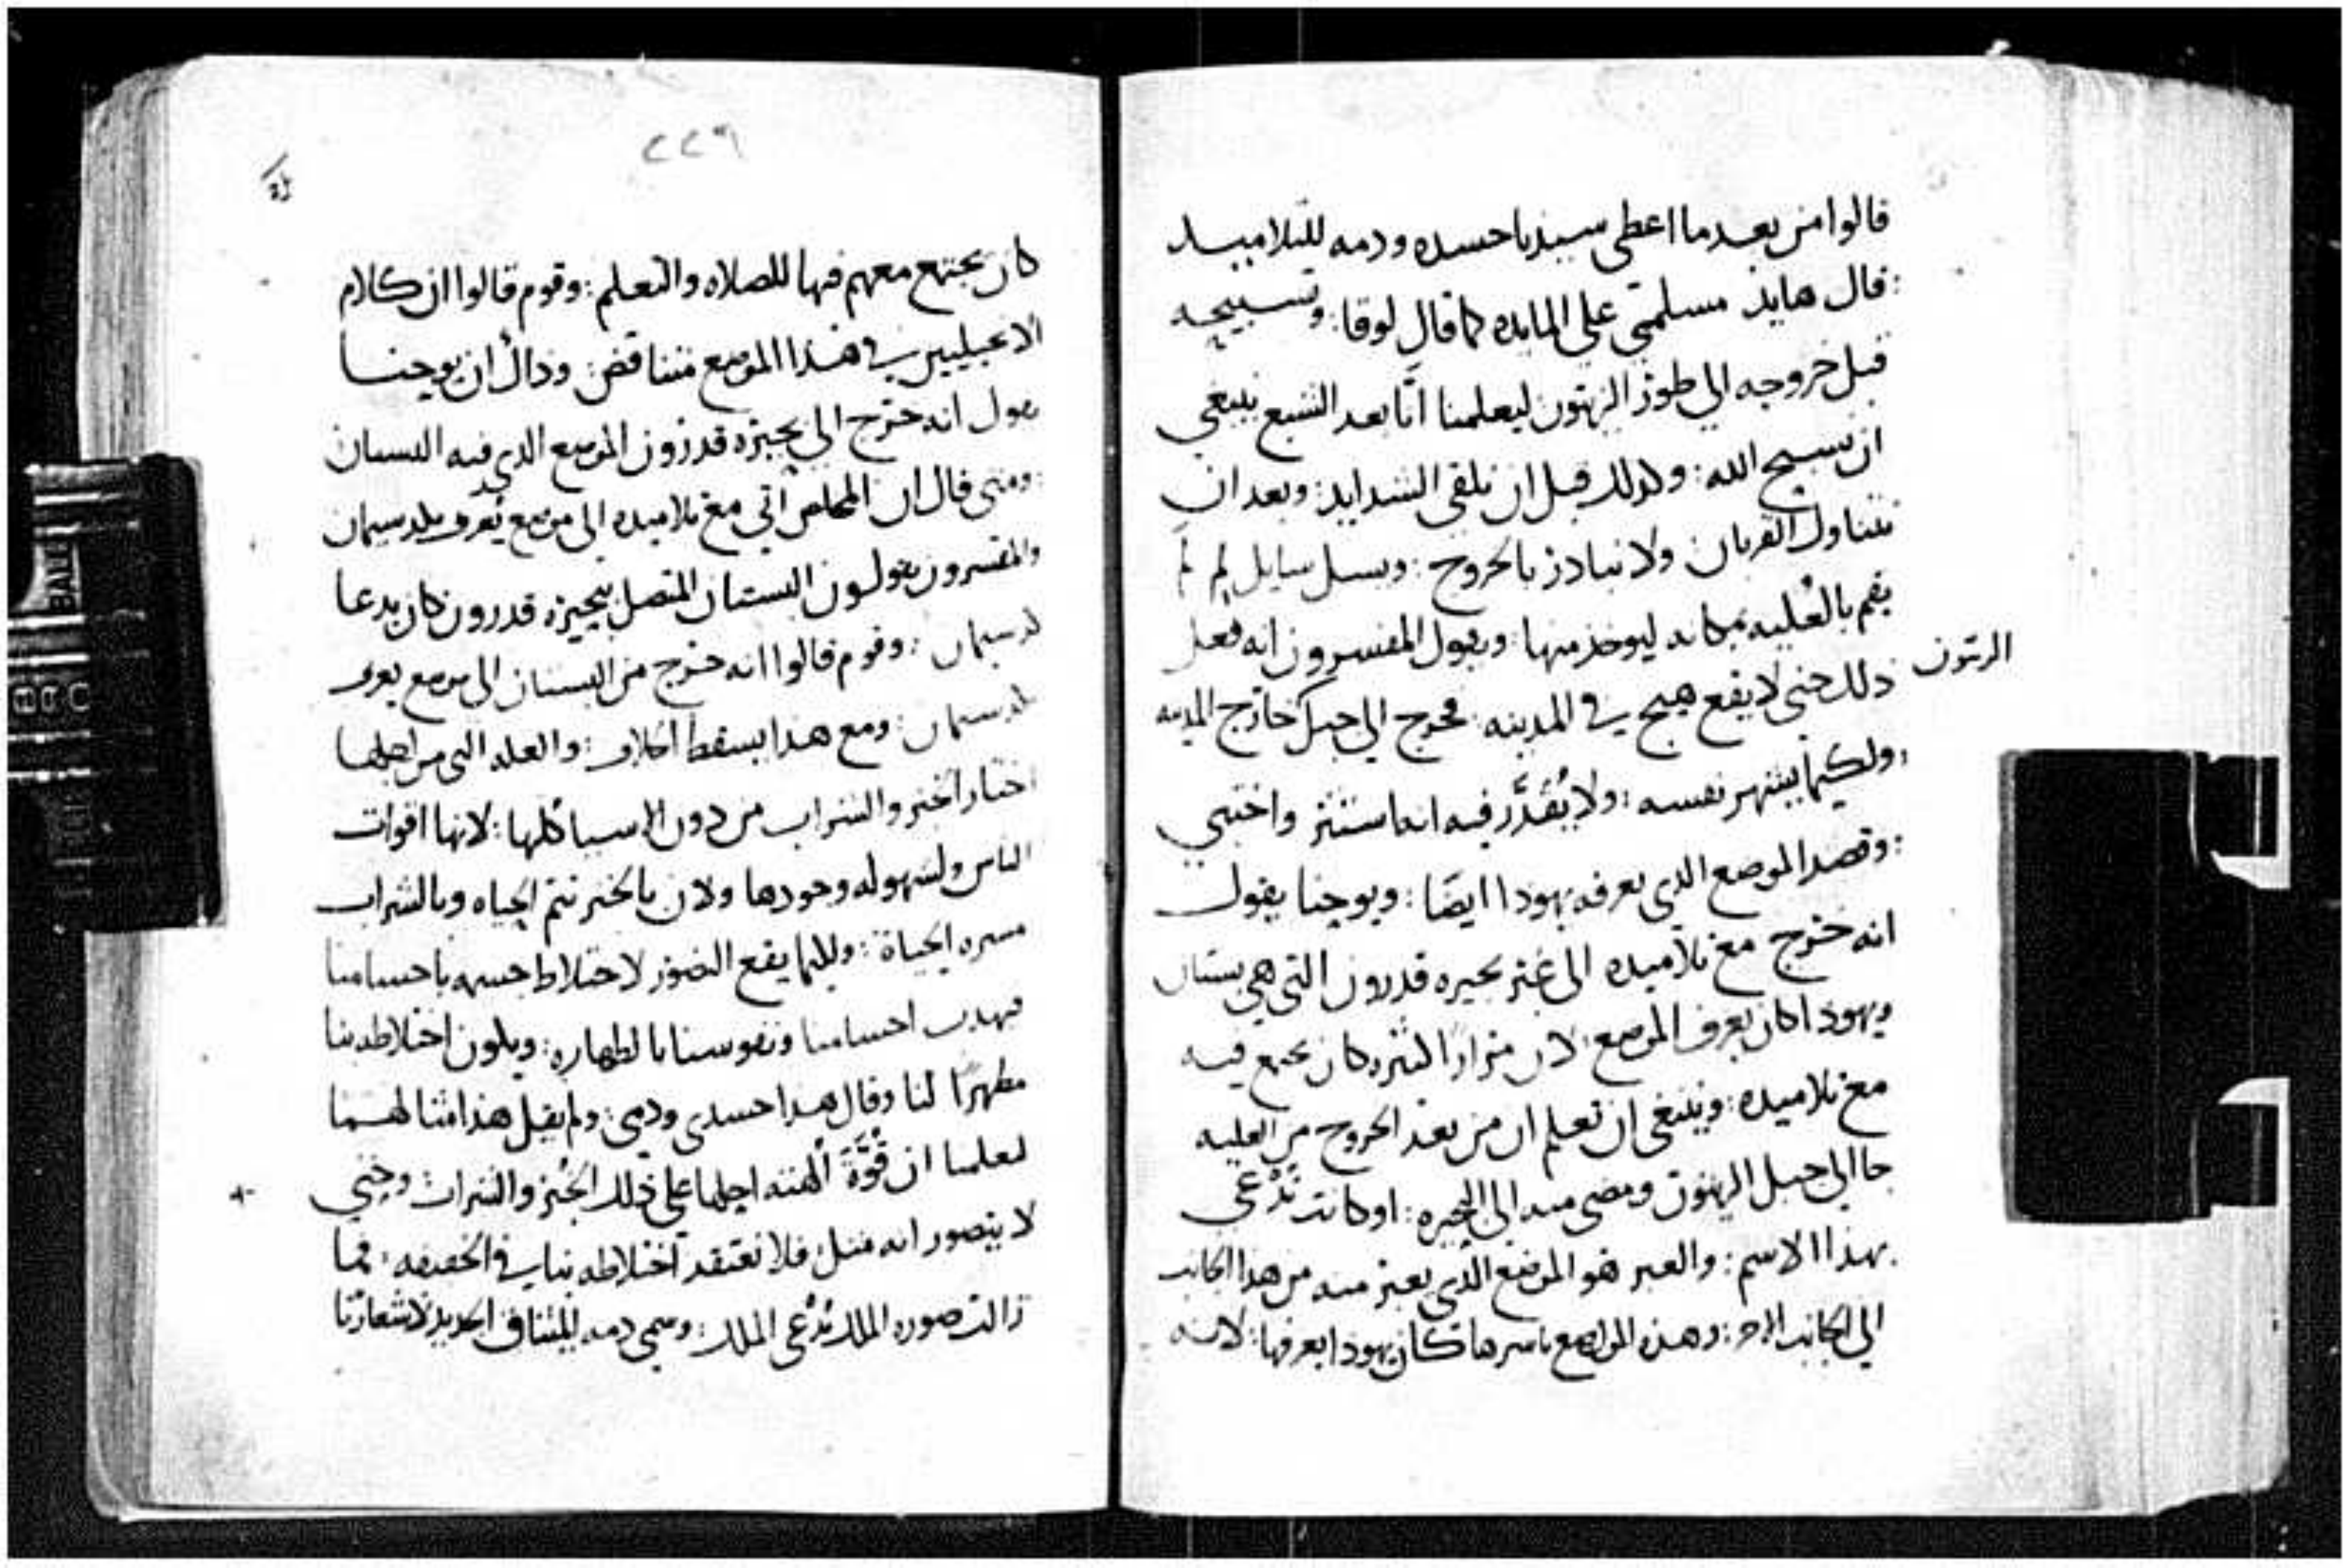 قالوا من بعد ما اعطى سيدنا جسده ودمه للتلاميد
: قال هايد مسلمي على المايده كما قال لوقا : وتسبيحه
قبل خروجه الى طور الزيتون ليعلمنا انا بعد الشبع ينبغي
ان نسبح الله : وكدلك قبل ان نلقى الشدايد : وبعد ان
نتناول القربان ولا نبادر بالخروج : ويسل سايل لِمَ لَم
يقم بالعُليه بمكانه ليوخذ منها : ويقول المفسرون انه فعل
الزيتون
ذلك حتى لا يقع هيج في المدينه : فخرج الى جبل خارج المدينه
: ولكيما يشهر نفسه : ولا يُقَدَّر فيه انه استتر واختبي
: وقصد الموضع الدي يعرفه يهودا ايضًا : ويوحنا يقول
انه خرج مع تلاميده الى عبر بحيره قدرون التي هي بستان
ويهودا كان يعرف الموضع : لان مرارًا كثيره كان يجتمع فيه
مع تلاميده : وينبغي ان تعلم ان من بعد الخروج من العليه
جا الى جبل الزيتون ومضى منه الى البحيره : او كانت تُدْعى
بهذا الاسم : والعبر هو الموضع الذي يعبر منه من هذا الجانب
الى الجانب الاخر : وهذه المواضع باسرها كان يهودا يعرفها : لانه
٢٢٦
كان يجتمع معهم فيها للصلاه والتعلم : وقوم قالوا ان كلام
الانجيليين في هذا الموضع متناقض : وذاك ان يوحنا
يقول انه خرج الى بحيرة قدرون الموضع الدي فيه البستان
: ومتى قال ان المخلص اتى مع تلاميده الى موضع يُعرف بلدسيمان
والمفسرون يقولون البستان المتصل ببحيرة قدرون كان يدعا
لدسيمان : وقوم قالوا انه خرج من البستان الى موضع يعرف
بلدسيمان : ومع هذا يسقط الخلاف : والعله التي من اجلها
اختار الخبز والشراب من دون الاشيا كلها : لانها اقوات
الناس ولسهوله وجودها ولان بالخبز تتم الحياه وبالشراب
مسره الحياة : وكيما يقع التصور لاختلاط جسمه باجسامنا
فيهدب اجسامنا ونفوسنا بالطهاره : ويكون اختلاطه بنا
مطهرًا لنا وقال هدا جسدى ودمي : ولم يقل هذا مثالهما
ليعلمنا ان قُوَّةَ الهيته احلها على ذلك الخُبز والشراب وحتي
لا يتصور انه مثل فلا نعتقد اختلاطه بنا في الحقيقه : فما
زالت صوره الملك تُدْعى الملك : وسمي دمه للميثاق الجديد لاشعارنا